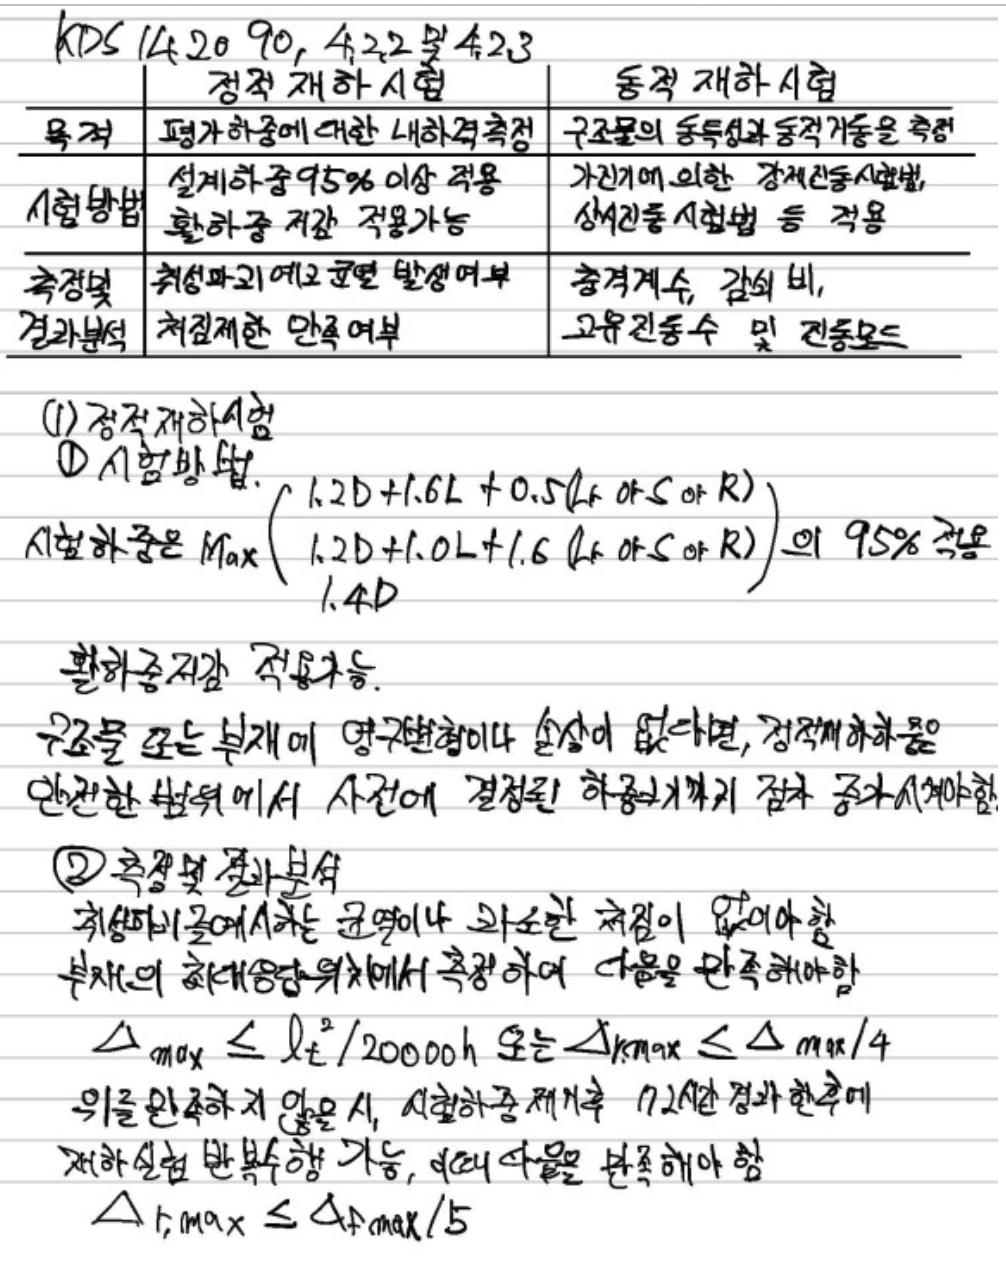 KDS 14 20 90, 4.2.2 및 4.2.3
정적 재하시험 동적 재하시험
목적 평가하중에 대한 내하력측정 구조물의 동특성과 동적거동을 측정
시험방법 설계하중 95% 이상 적용 가진기에 의한 강제진동시험법,
활하중 저감 적용가능 상시진동시험법 등 적용
측정및 취성파괴예고 균열 발생여부 충격계수, 감쇠비,
결과분석 처짐제한 만족여부 고유진동수 및 진동모드
(1) 정적재하시험
① 시험방법.
1.2D+1.6L+0.5(Lr or S or R)
시험하중은 Max 1.2D+1.0L+1.6(Lr or S or R) 의 95% 적용
1.4D
활하중저감 적용가능.
구조물 또는 부재에 영구변형이나 손상이 없다면, 정적재하하중은
안전한 범위에서 사전에 결정된 하중크기까지 점차 증가시켜야함.
② 측정및 결과분석
취성파괴를예시하는 균열이나 과도한 처짐이 없어야함
부재의 최대응답위치에서 측정하여 다음을 만족해야함
Δmax ≤ lt²/20000h 또는 Δr,max ≤ Δmax/4
위를 만족하지 않을시, 시험하중제거후 72시간 경과한후에
재하실험 반복수행 가능, 이때 다음을 만족해야 함
Δr,max ≤ Δf,max/5